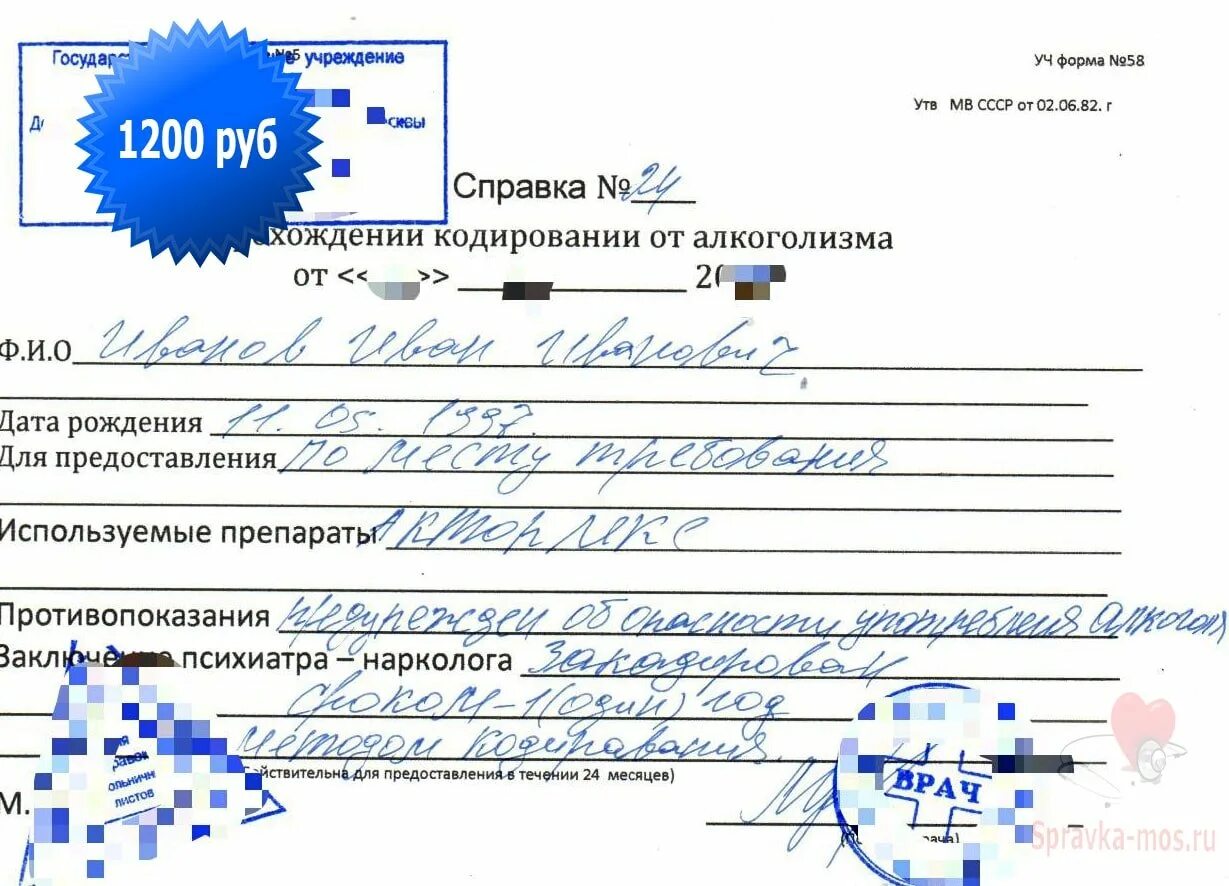 Государ №5 е учреждение
сквы
1200 руб
УЧ форма №58
Утв МВ СССР от 02.06.82. г
Справка № 24
охождении кодировании от алкоголизма
от << >> 2
Ф.И.О Иванов Иван Иванович
Дата рождения 11. 05. 1997.
Для предоставления по месту требования
Используемые препараты Акторлекс
Противопоказания предупрежден об опасности употребления алкоголя
Заключение психиатра – нарколога Закодирован
сроком – 1 (один) год
методом кодирования.
ействительна для предоставления в течении 24 месяцев)
ольничн
листов
М.
ВРАЧ
рача)
Spravka-mos.ru